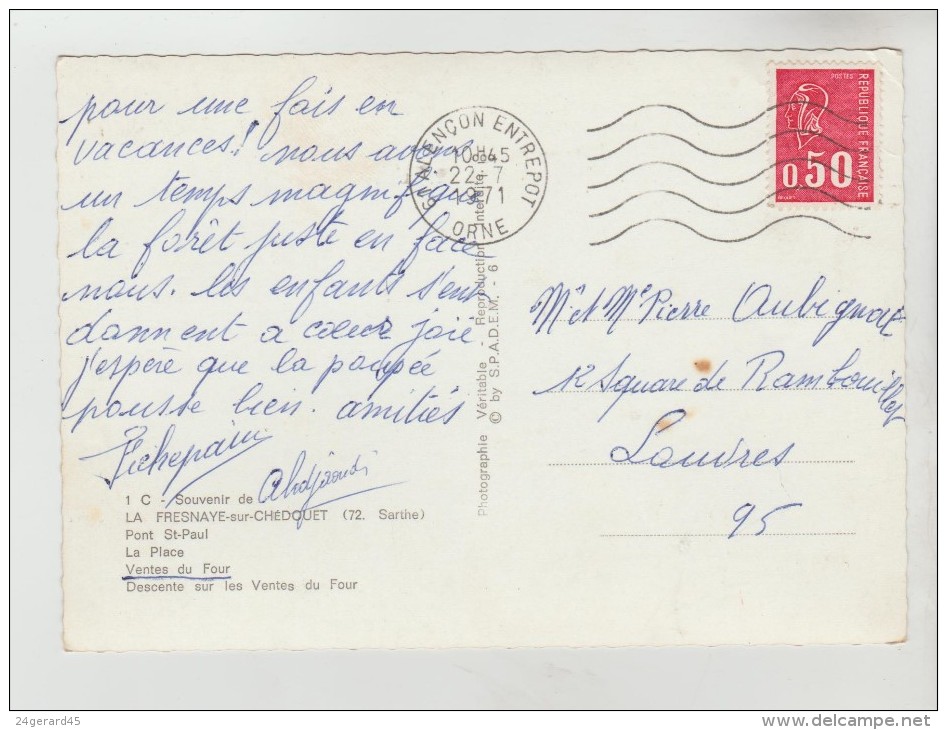 pour une fois en
vacances! nous avons
un temps magnifique
la forêt juste en face
nous. les enfants s'en
donnent a coeur joie
j'espère que la poupée
pousse bien. amitiés
1 C - Souvenir de
LA FRESNAYE-sur-CHÉDOUET (72. Sarthe)
Pont St-Paul
La Place
Ventes du Four
Descente sur les Ventes du Four
Photographie Véritable - Reproduction Interdite.
© by S.P.A.D.E.M. - 6
ALENÇON ENTREPOT
10H45
22-7
1971
ORNE
POSTES
REPUBLIQUE FRANÇAISE
0,50
Mr et Me Pierre Aubignat
12 Square de Rambouillet
Louvres
95
24gerard45
delcampe.net